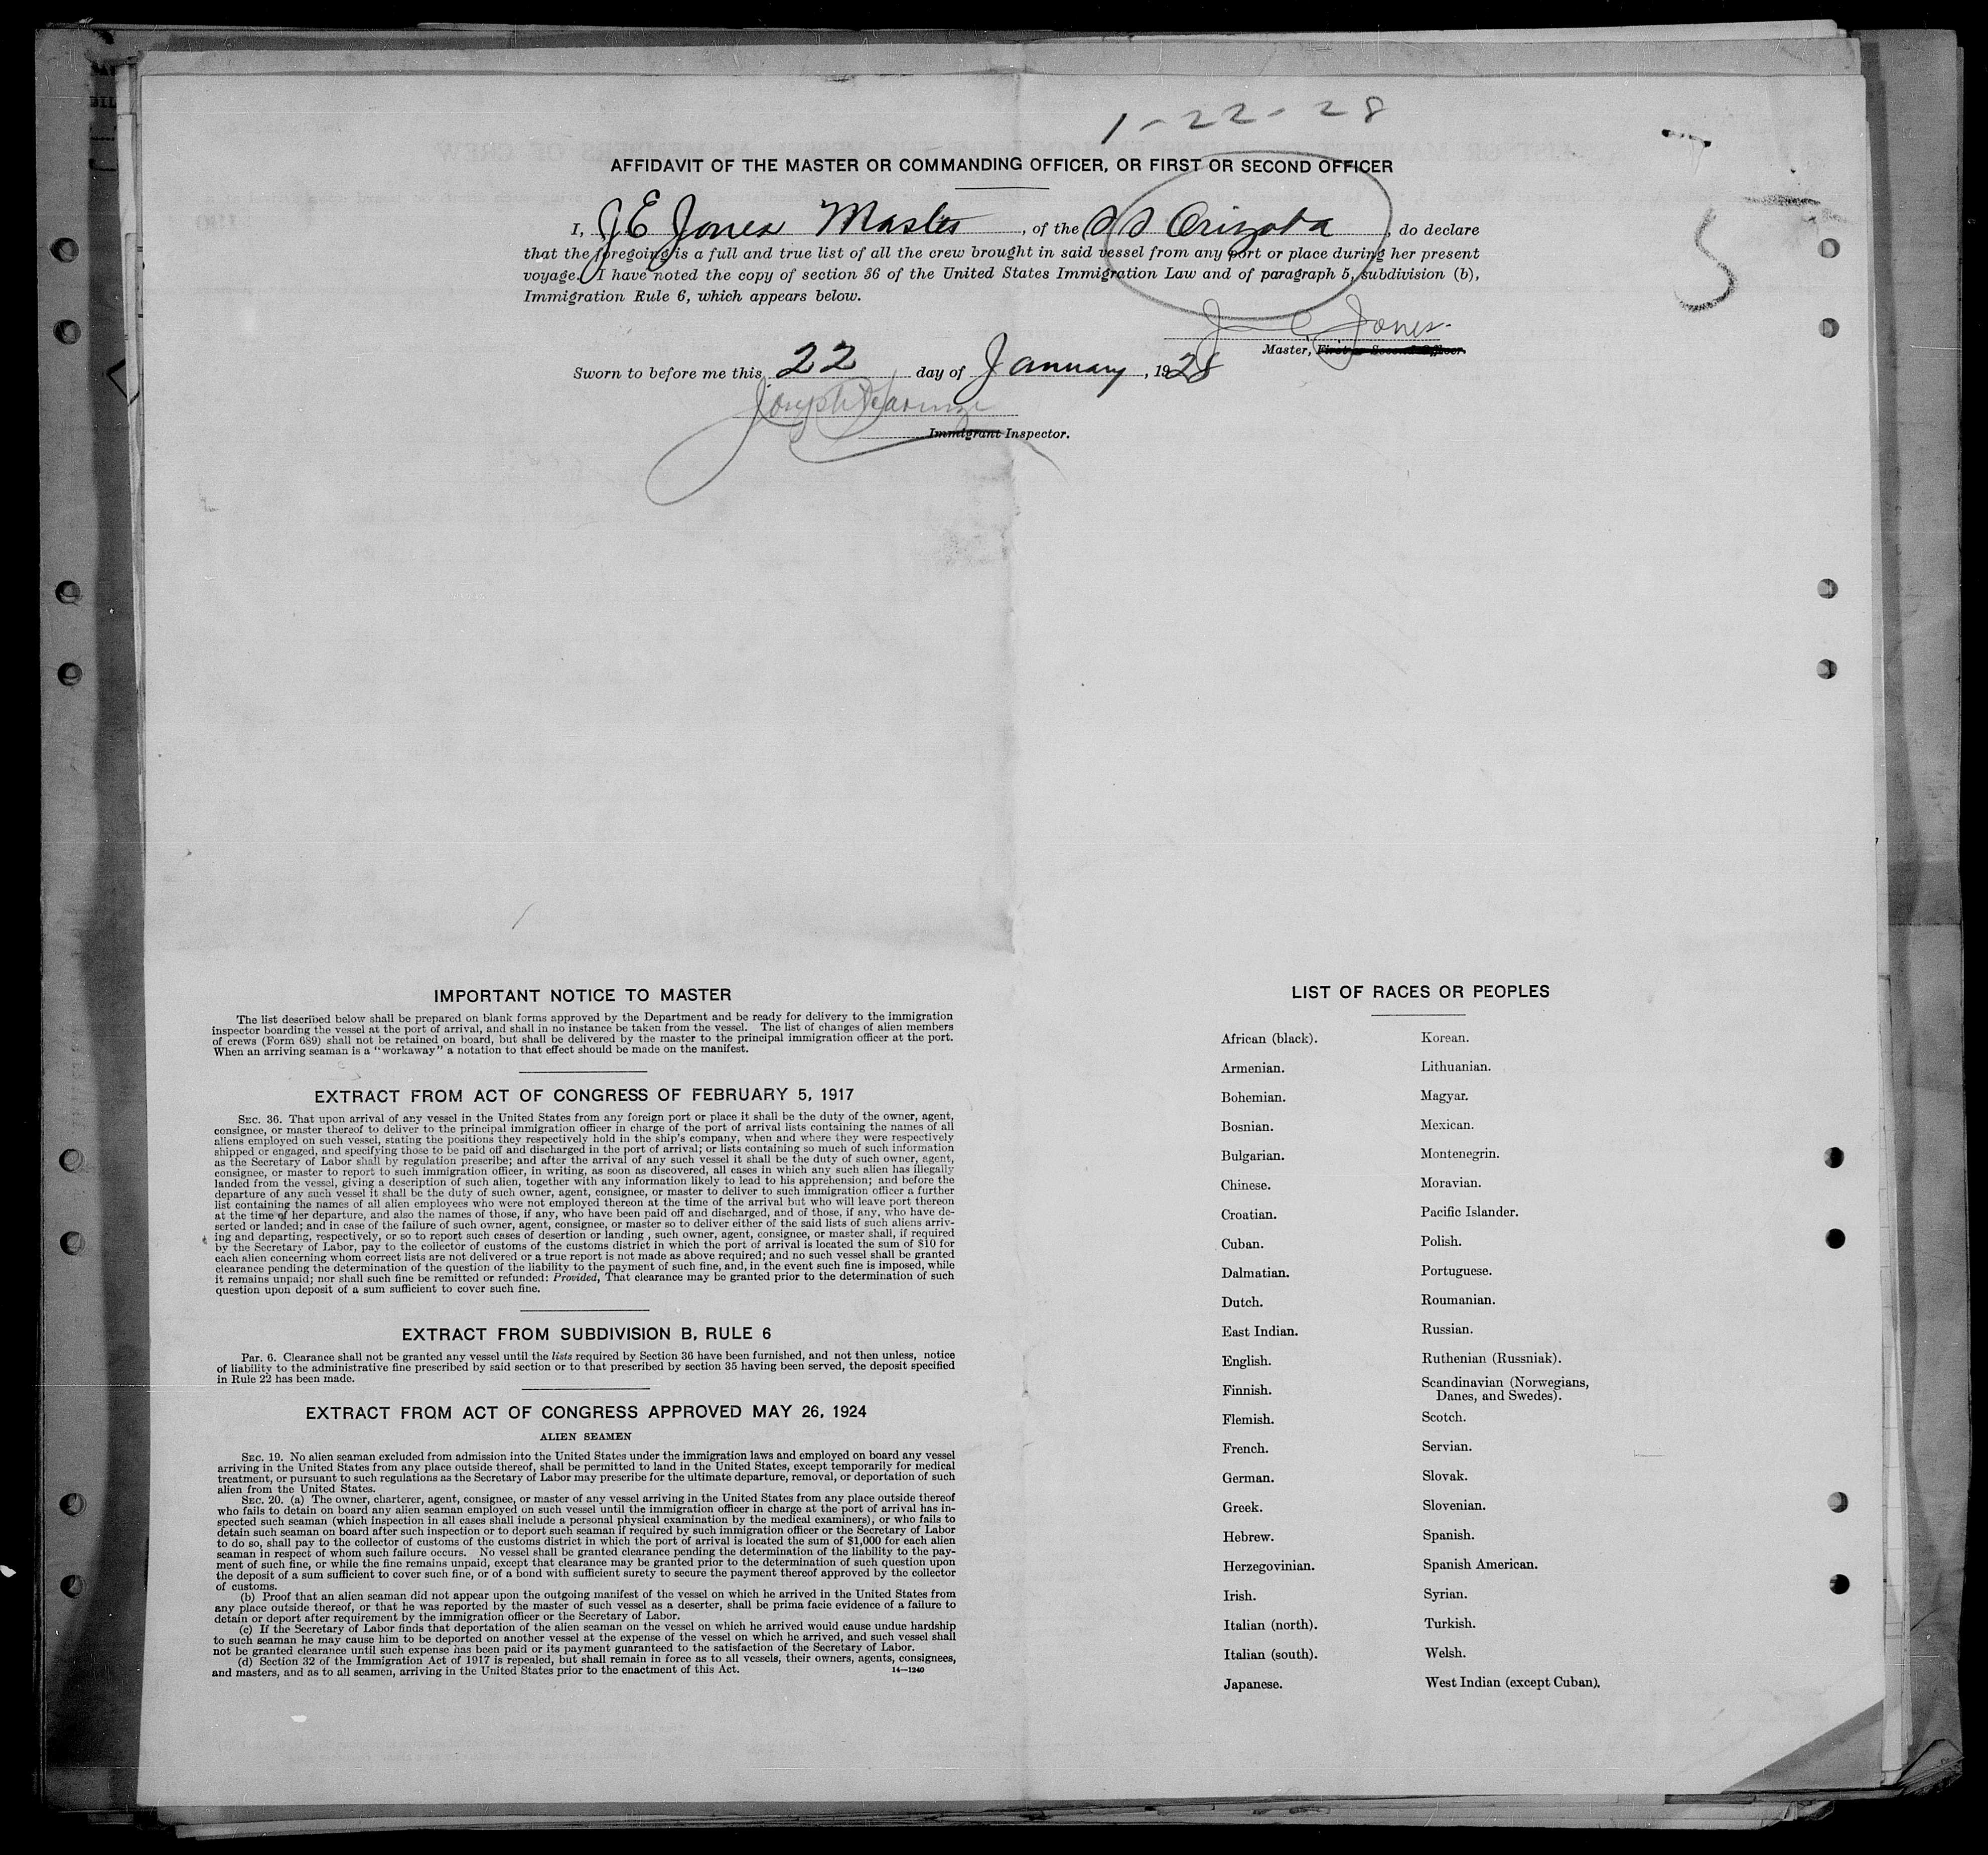 1-22-28
AFFIDAVIT OF THE MASTER OR COMMANDING OFFICER, OR FIRST OR SECOND OFFICER
5
I, J E Jones Master, of the S S Orizaba, do declare
that the foregoing is a full and true list of all the crew brought in said vessel from any port or place during her present
voyage. I have noted the copy of section 36 of the United States Immigration Law and of paragraph 5, subdivision (b),
Immigration Rule 6, which appears below.
J E Jones
Master, First or Second Officer.
Sworn to before me this 22 day of January, 1928
Joseph
Immigrant Inspector.
IMPORTANT NOTICE TO MASTER
The list described below shall be prepared on blank forms approved by the Department and be ready for delivery to the immigration
inspector boarding the vessel at the port of arrival, and shall in no instance be taken from the vessel. The list of changes of alien members
of crews (Form 689) shall not be retained on board, but shall be delivered by the master to the principal immigration officer at the port.
When an arriving seaman is a "workaway" a notation to that effect should be made on the manifest.
EXTRACT FROM ACT OF CONGRESS OF FEBRUARY 5, 1917
SEC. 36. That upon arrival of any vessel in the United States from any foreign port or place it shall be the duty of the owner, agent,
consignee, or master thereof to deliver to the principal immigration officer in charge of the port of arrival lists containing the names of all
aliens employed on such vessel, stating the positions they respectively hold in the ship's company, when and where they were respectively
shipped or engaged, and specifying those to be paid off and discharged in the port of arrival; or lists containing so much of such information
as the Secretary of Labor shall by regulation prescribe; and after the arrival of any such vessel it shall be the duty of such owner, agent,
consignee, or master to report to such immigration officer, in writing, as soon as discovered, all cases in which any such alien has illegally
landed from the vessel, giving a description of such alien, together with any information likely to lead to his apprehension; and before the
departure of any such vessel it shall be the duty of such owner, agent, consignee, or master to deliver to such immigration officer a further
list containing the names of all alien employees who were not employed thereon at the time of the arrival but who will leave port thereon
at the time of her departure, and also the names of those, if any, who have been paid off and discharged, and of those, if any, who have de-
serted or landed; and in case of the failure of such owner, agent, consignee, or master so to deliver either of the said lists of such aliens arriv-
ing and departing, respectively, or so to report such cases of desertion or landing , such owner, agent, consignee, or master shall, if required
by the Secretary of Labor, pay to the collector of customs of the customs district in which the port of arrival is located the sum of $10 for
each alien concerning whom correct lists are not delivered or a true report is not made as above required; and no such vessel shall be granted
clearance pending the determination of the question of the liability to the payment of such fine, and, in the event such fine is imposed, while
it remains unpaid; nor shall such fine be remitted or refunded: Provided, That clearance may be granted prior to the determination of such
question upon deposit of a sum sufficient to cover such fine.
EXTRACT FROM SUBDIVISION B, RULE 6
Par. 6. Clearance shall not be granted any vessel until the lists required by Section 36 have been furnished, and not then unless, notice
of liability to the administrative fine prescribed by said section or to that prescribed by section 35 having been served, the deposit specified
in Rule 22 has been made.
EXTRACT FROM ACT OF CONGRESS APPROVED MAY 26, 1924
ALIEN SEAMEN
SEC. 19. No alien seaman excluded from admission into the United States under the immigration laws and employed on board any vessel
arriving in the United States from any place outside thereof, shall be permitted to land in the United States, except temporarily for medical
treatment, or pursuant to such regulations as the Secretary of Labor may prescribe for the ultimate departure, removal, or deportation of such
alien from the United States.
SEC. 20. (a) The owner, charterer, agent, consignee, or master of any vessel arriving in the United States from any place outside thereof
who fails to detain on board any alien seaman employed on such vessel until the immigration officer in charge at the port of arrival has in-
spected such seaman (which inspection in all cases shall include a personal physical examination by the medical examiners), or who fails to
detain such seaman on board after such inspection or to deport such seaman if required by such immigration officer or the Secretary of Labor
to do so, shall pay to the collector of customs of the customs district in which the port of arrival is located the sum of $1,000 for each alien
seaman in respect of whom such failure occurs. No vessel shall be granted clearance pending the determination of the liability to the pay-
ment of such fine, or while the fine remains unpaid, except that clearance may be granted prior to the determination of such question upon
the deposit of a sum sufficient to cover such fine, or of a bond with sufficient surety to secure the payment thereof approved by the collector
of customs.
(b) Proof that an alien seaman did not appear upon the outgoing manifest of the vessel on which he arrived in the United States from
any place outside thereof, or that he was reported by the master of such vessel as a deserter, shall be prima facie evidence of a failure to
detain or deport after requirement by the immigration officer or the Secretary of Labor.
(c) If the Secretary of Labor finds that deportation of the alien seaman on the vessel on which he arrived would cause undue hardship
to such seaman he may cause him to be deported on another vessel at the expense of the vessel on which he arrived, and such vessel shall
not be granted clearance until such expense has been paid or its payment guaranteed to the satisfaction of the Secretary of Labor.
(d) Section 32 of the Immigration Act of 1917 is repealed, but shall remain in force as to all vessels, their owners, agents, consignees,
and masters, and as to all seamen, arriving in the United States prior to the enactment of this Act.
14—1240
LIST OF RACES OR PEOPLES
African (black).
Armenian.
Bohemian.
Bosnian.
Bulgarian.
Chinese.
Croatian.
Cuban.
Dalmatian.
Dutch.
East Indian.
English.
Finnish.
Flemish.
French.
German.
Greek.
Hebrew.
Herzegovinian.
Irish.
Italian (north).
Italian (south).
Japanese.
Korean.
Lithuanian.
Magyar.
Mexican.
Montenegrin.
Moravian.
Pacific Islander.
Polish.
Portuguese.
Roumanian.
Russian.
Ruthenian (Russniak).
Scandinavian (Norwegians,
Danes, and Swedes).
Scotch.
Servian.
Slovak.
Slovenian.
Spanish.
Spanish American.
Syrian.
Turkish.
Welsh.
West Indian (except Cuban).